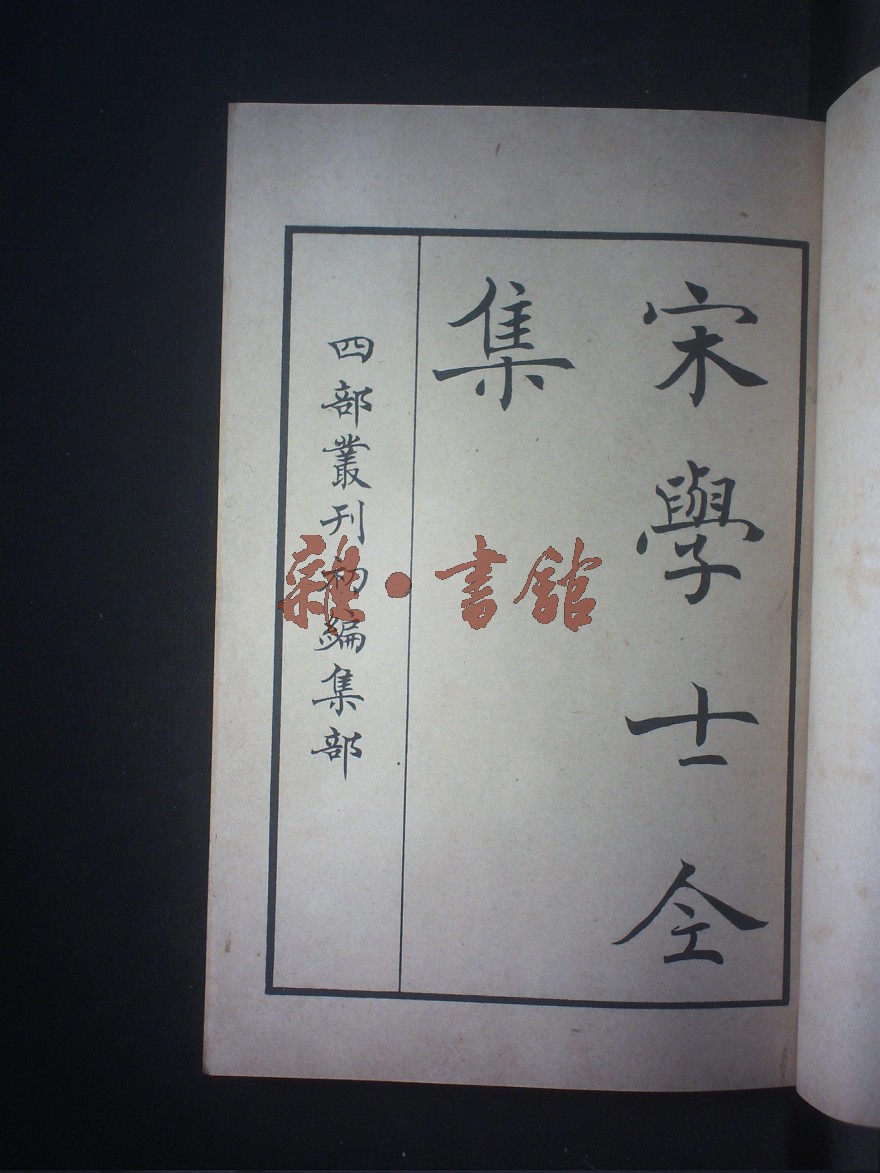 宋學士全
集
四部叢刊初編集部
雜·書館